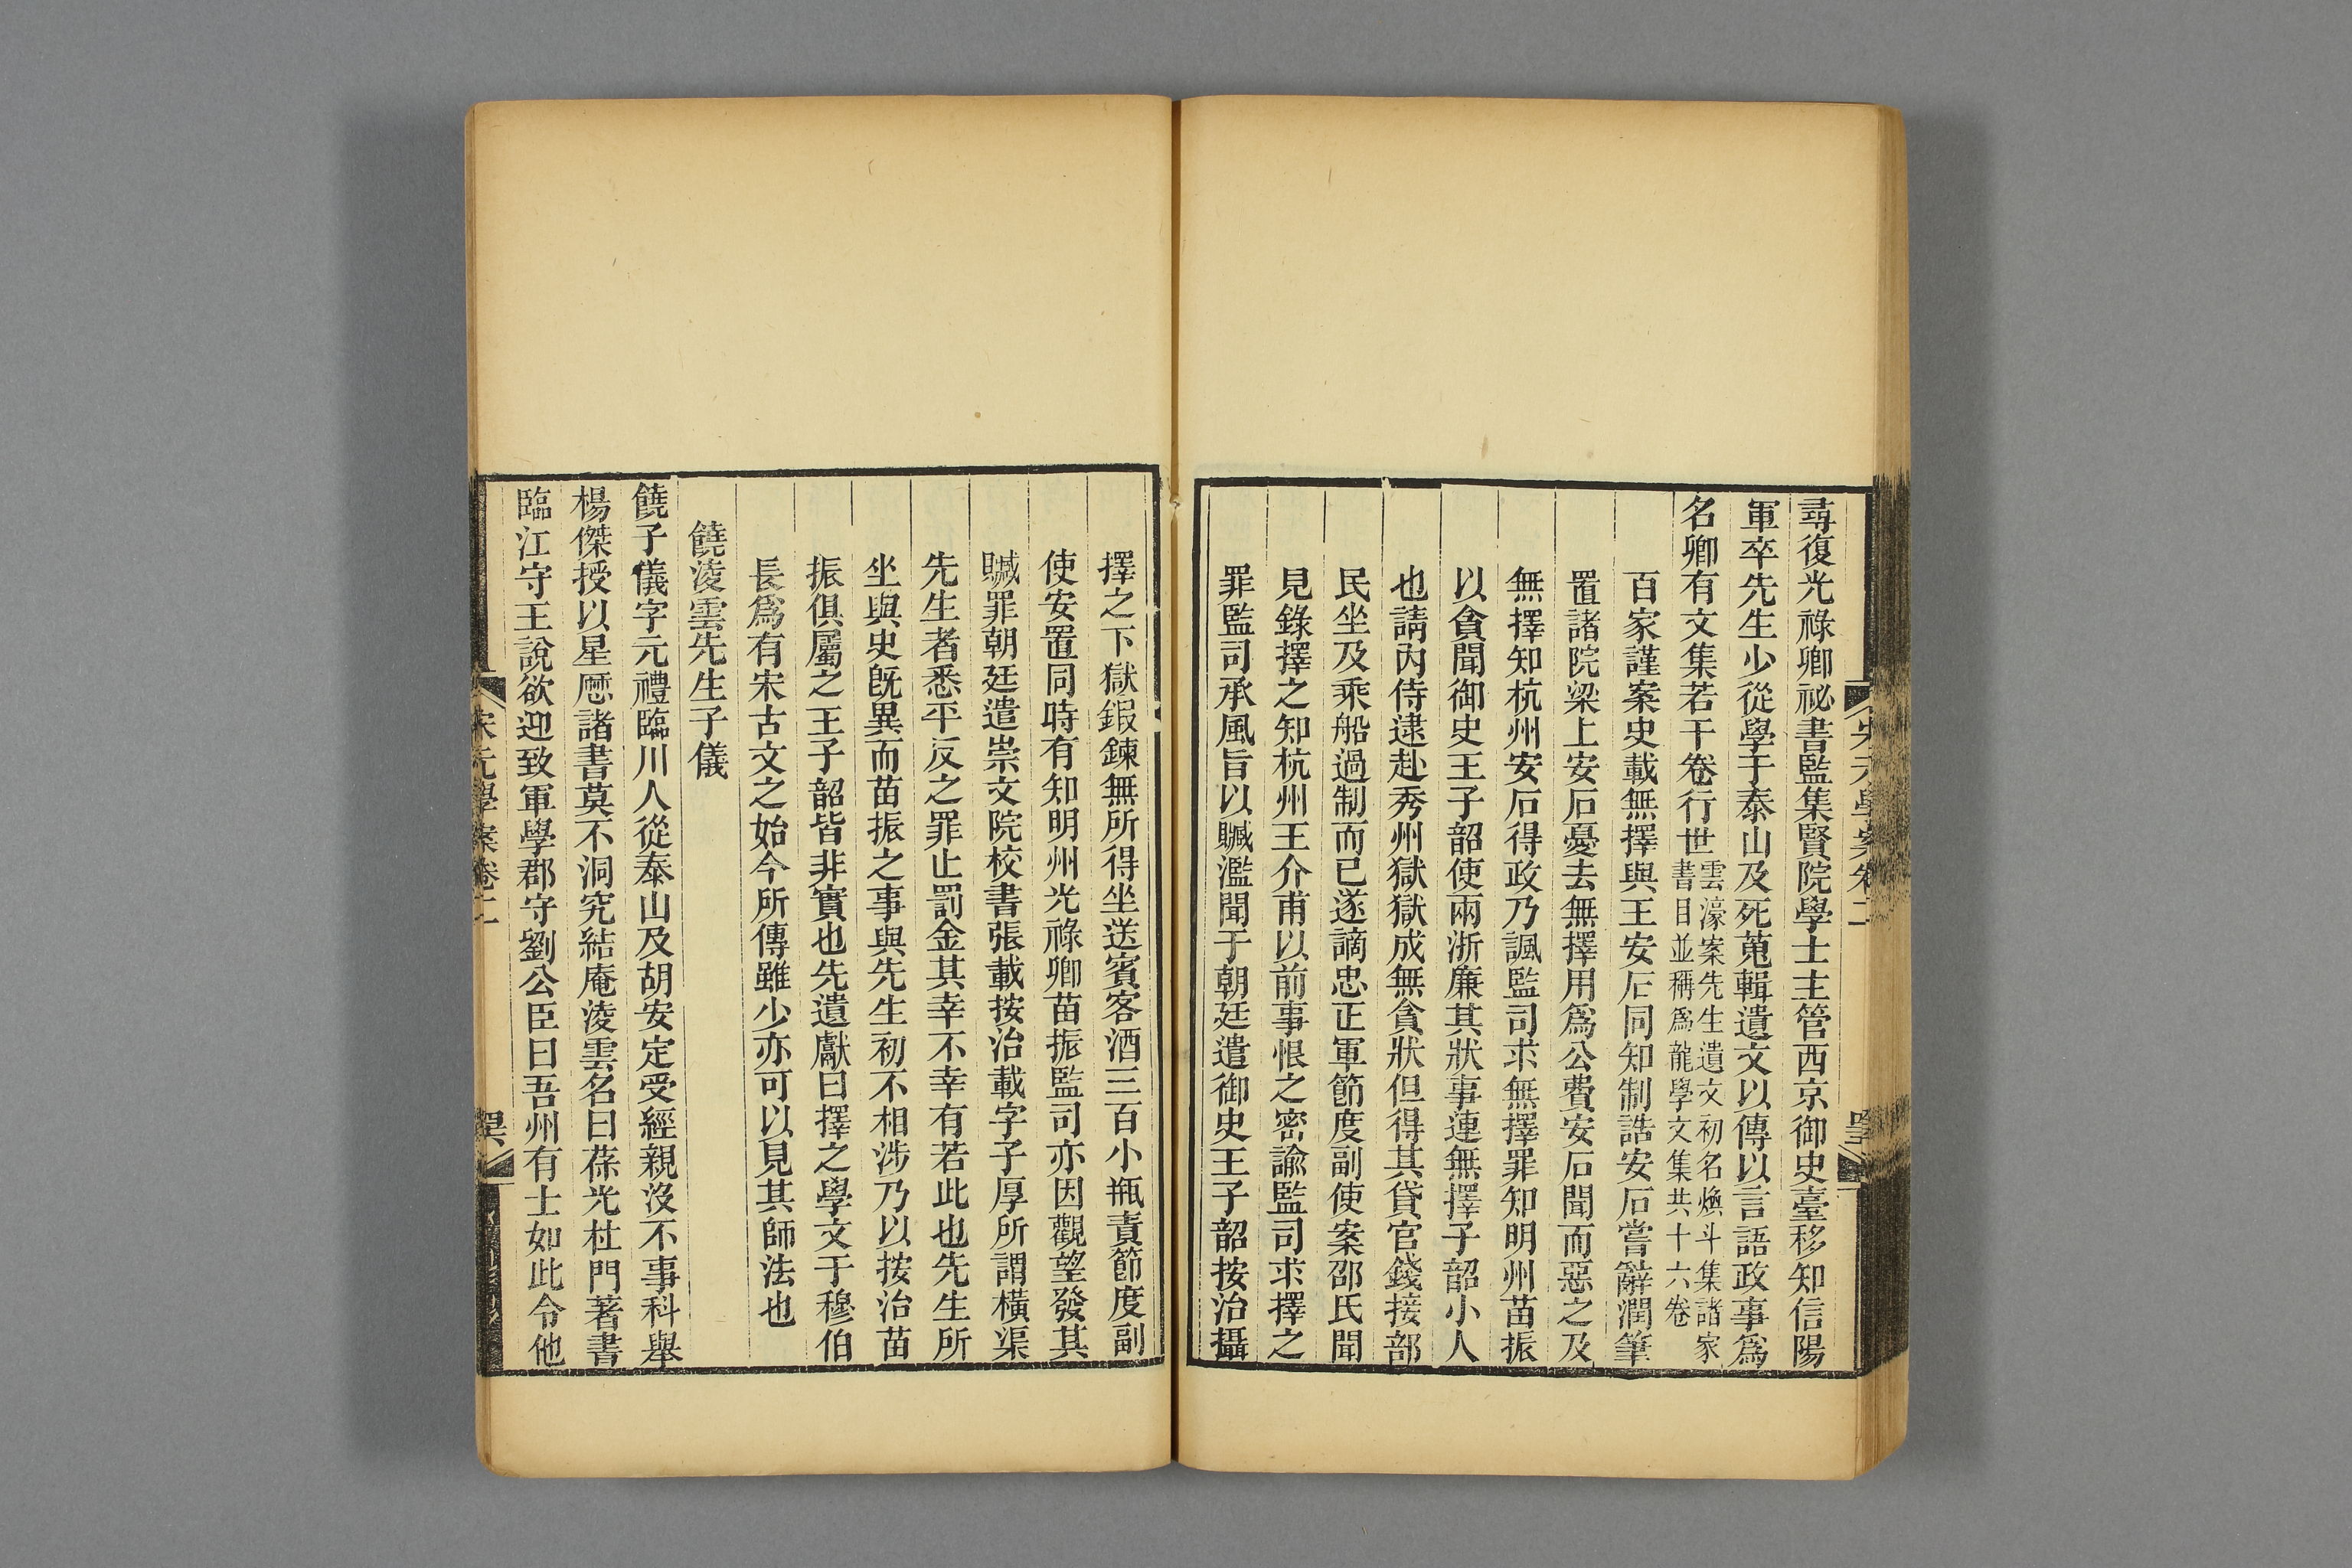 尋復光祿卿祕書監集賢院學士主管西京御史臺移知信陽
軍卒先生少從學于泰山及死蒐輯遺文以傳以言語政事爲
名卿有文集若干卷行世
雲濠案先生遺文初名煥斗集諸家
書目並稱爲龍學文集共十六卷
百家謹案史載無擇與王安石同知制誥安石嘗辭潤筆
置諸院梁上安石憂去無擇用爲公費安石聞而惡之及
無擇知杭州安石得政乃諷監司求無擇罪知明州苗振
以貪聞御史王子韶使兩浙廉其狀事連無擇子韶小人
也請內侍逮赴秀州獄獄成無貪狀但得其貸官錢接部
民坐及乘船過制而已遂謫忠正軍節度副使案邵氏聞
見錄擇之知杭州王介甫以前事恨之密諭監司求擇之
罪監司承風旨以贓濫聞于朝廷遣御史王子韶按治攝
擇之下獄鍜鍊無所得坐送賓客酒三百小瓶責節度副
使安置同時有知明州光祿卿苗振監司亦因觀望發其
贓罪朝廷遣崇文院校書張載按治載字子厚所謂橫渠
先生者悉平反之罪止罰金其幸不幸有若此也先生所
坐與史旣異而苗振之事與先生初不相涉乃以按治苗
振俱屬之王子韶皆非實也先遺獻曰擇之學文于穆伯
長爲有宋古文之始今所傳雖少亦可以見其師法也
饒淩雲先生子儀
饒子儀字元禮臨川人從泰山及胡安定受經親沒不事科舉
楊傑授以星厯諸書莫不洞究結庵淩雲名曰葆光杜門著書
臨江守王說欲迎致軍學郡守劉公臣曰吾州有士如此令他
宋元學案卷二